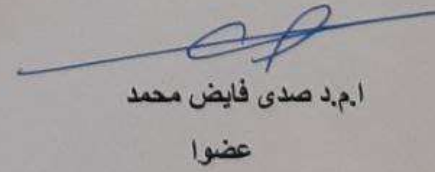 ا.م.د صدى فايض محمد
عضوا